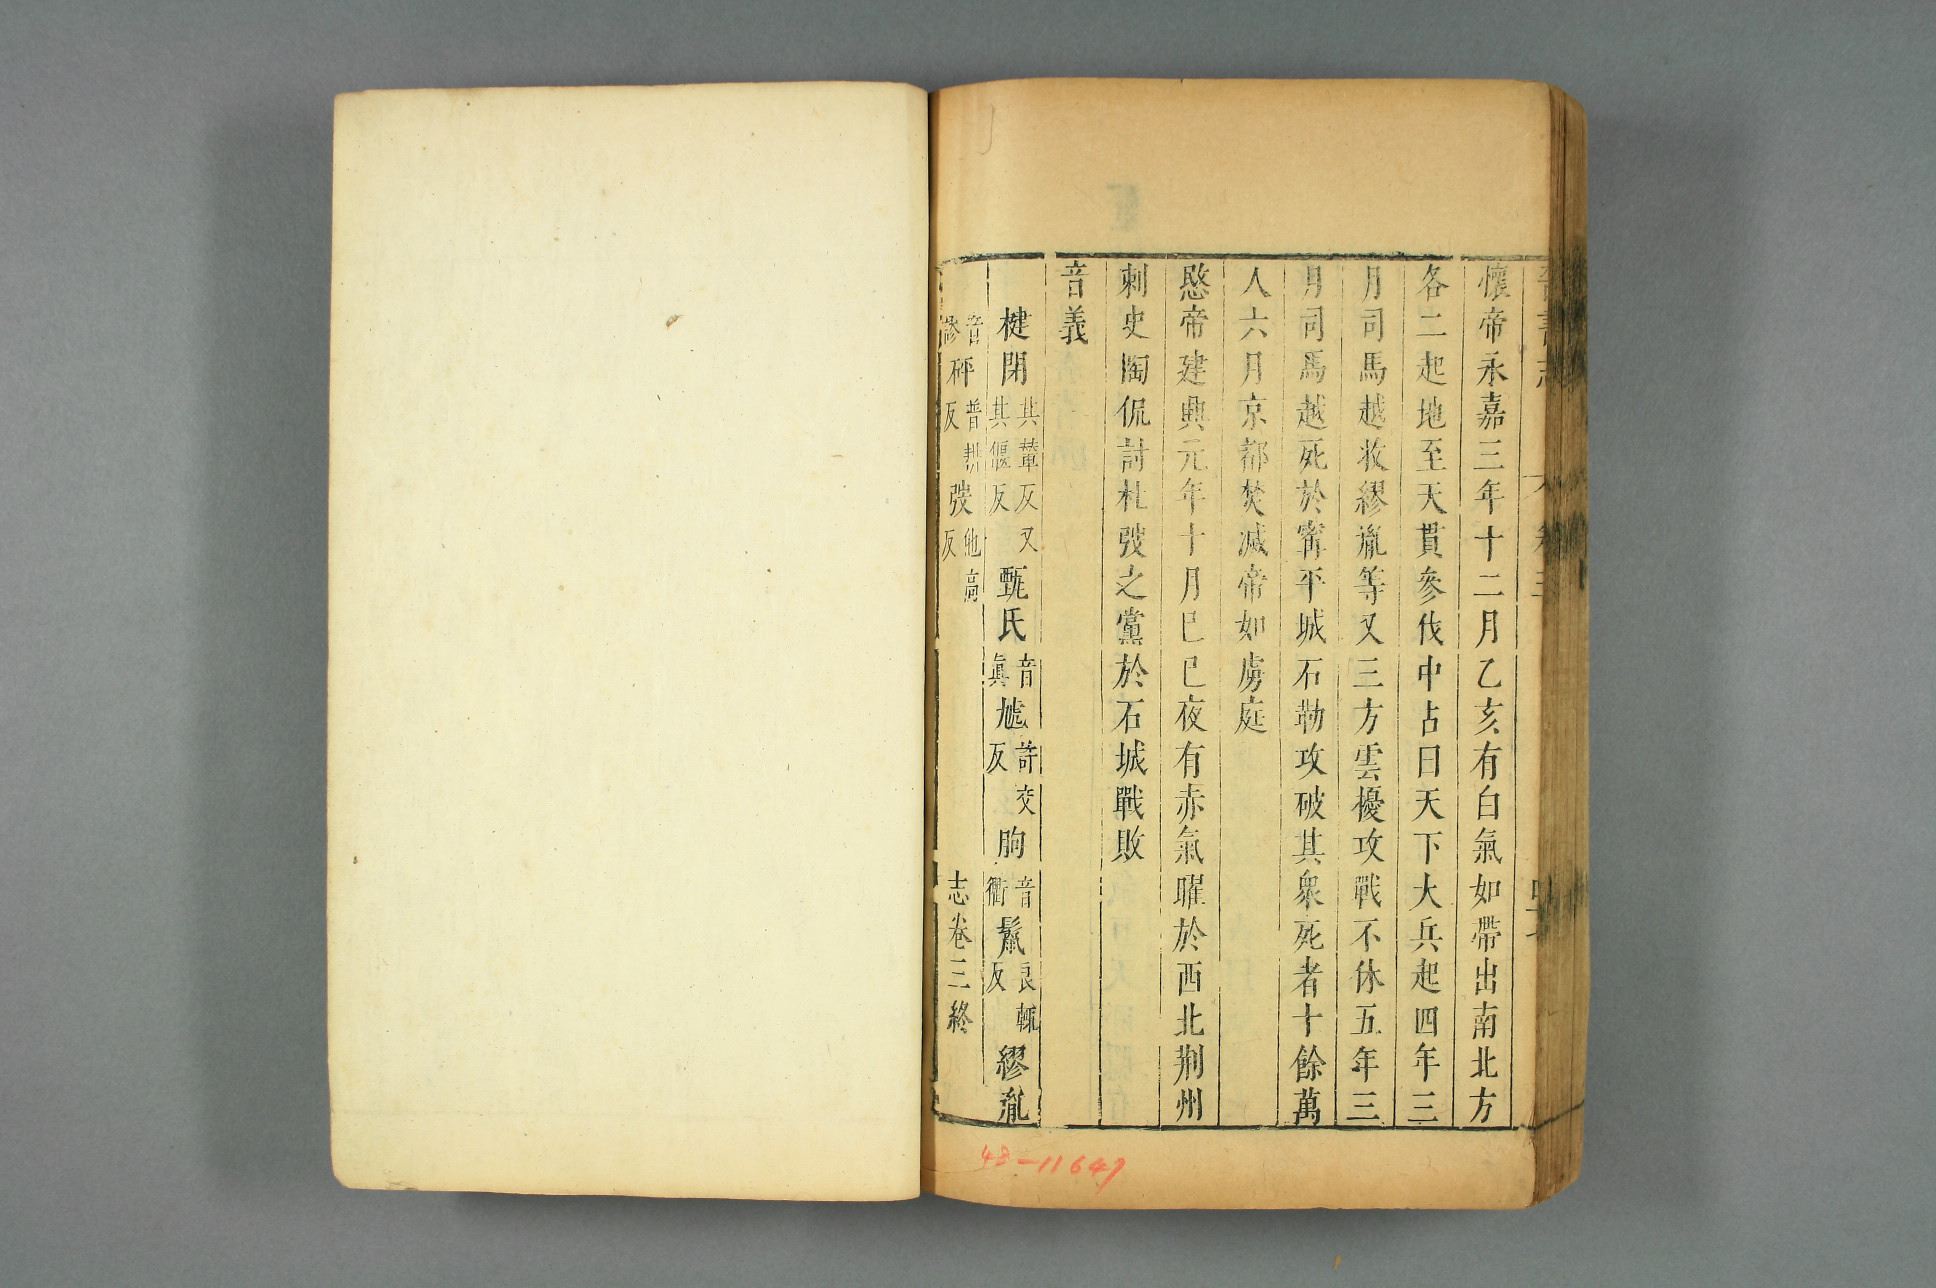 懷帝永嘉三年十二月乙亥有白氣如帶出南北方
各二起地至天貫參伐中占曰天下大兵起四年三
月司馬越收繆胤等又三方雲擾攻戰不休五年三
月司馬越死於甯平城石勒攻破其衆死者十餘萬
人六月京都焚滅帝如虜庭
愍帝建興元年十月巳巳夜有赤氣曜於西北荆州
刺史陶侃討杜弢之黨於石城戰敗
音義
楗閉其輦反又其偃反甄氏音眞虓許交反朐音衢鬣良輒反繆胤
音砰普反弢他反
志卷三終
48-11647